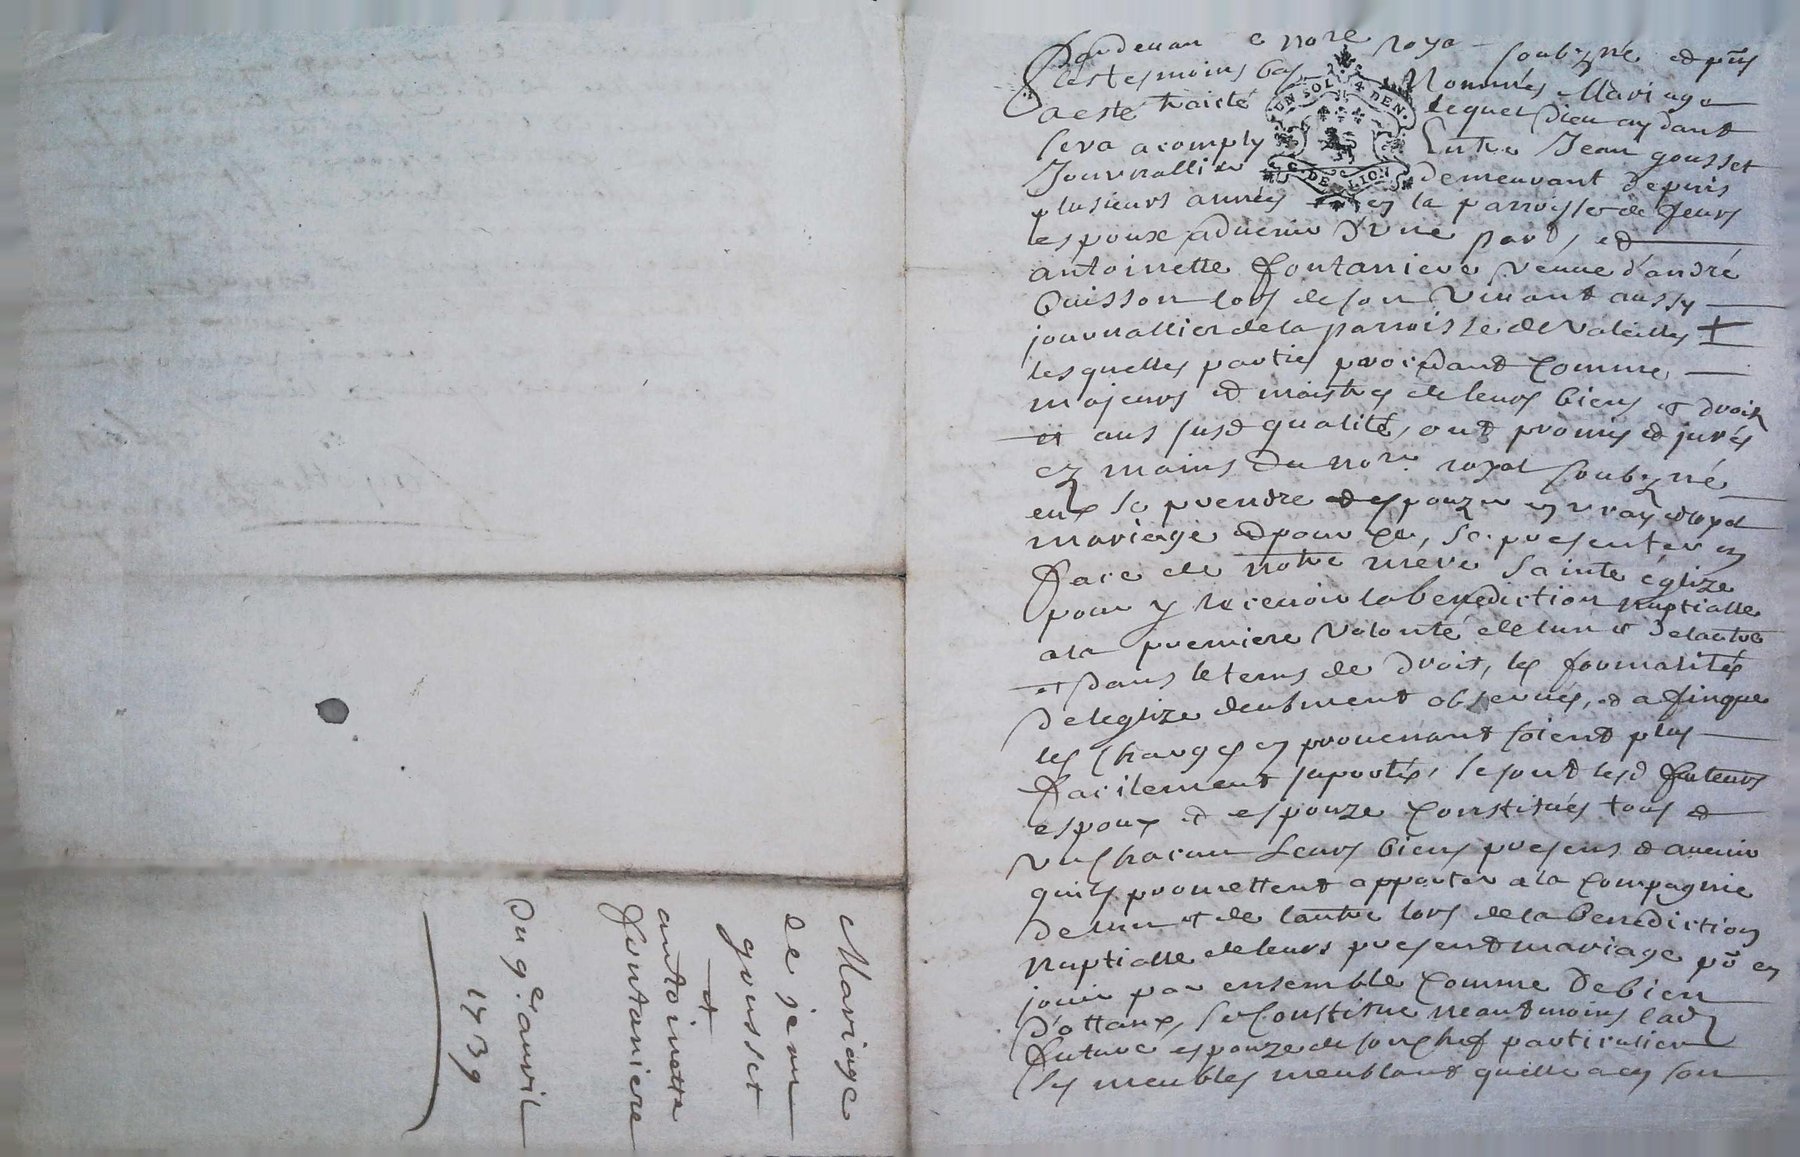 Mariage
de jean
gousset
et
antoinette
fontaniere
Du 9e. auvil
1739
Pardevan le nore royal soubzné et pñs
les tesmoins bas Nommés Mariage
a esté traicté lequel Dieu aydant
sera acomply Entre Jean gousset
Journallier demeurant depuis
plusieurs années en la parroisse de feurs
espoux aduenir d'une part, et
antoinette fontaniere veuue d'andré
buisson lors de son viuant aussy
journallier de la parroisse de valeilles
lesquelles parties procedant comme
majeurs et maistres de leurs biens & droits
et aus susd qualité, ont promis et jurés
ez mains du nore. royal soubzné
eux se prendre et espouzer en vray et loyal
mariage et pour ce, se presenter en
face de notre mere sainte églize
pour y receuoir la benediction nuptialle
a la premiere volonté de lun & de lautre
et dans le tems de droit, les formalités
de leglize deubment obseruées, et afin que
les charges en prouenant soient plus
facilement suportés, se sont lesd futeurs
espoux et espouze constitués tous et
vn chacun leurs biens presens et auenir
quils promettent apporter a la compagnie
de lun & de lautre lors de la Benediction
Nuptialle de leurs present mariage pr en
jouir par ensemble comme de bien
d'ottaux, se constitue neantmoins lad
future espouze de son chef particulier
ses meubles meublant quelle a en son
UN SOL 4 DEN.
G. DE LION